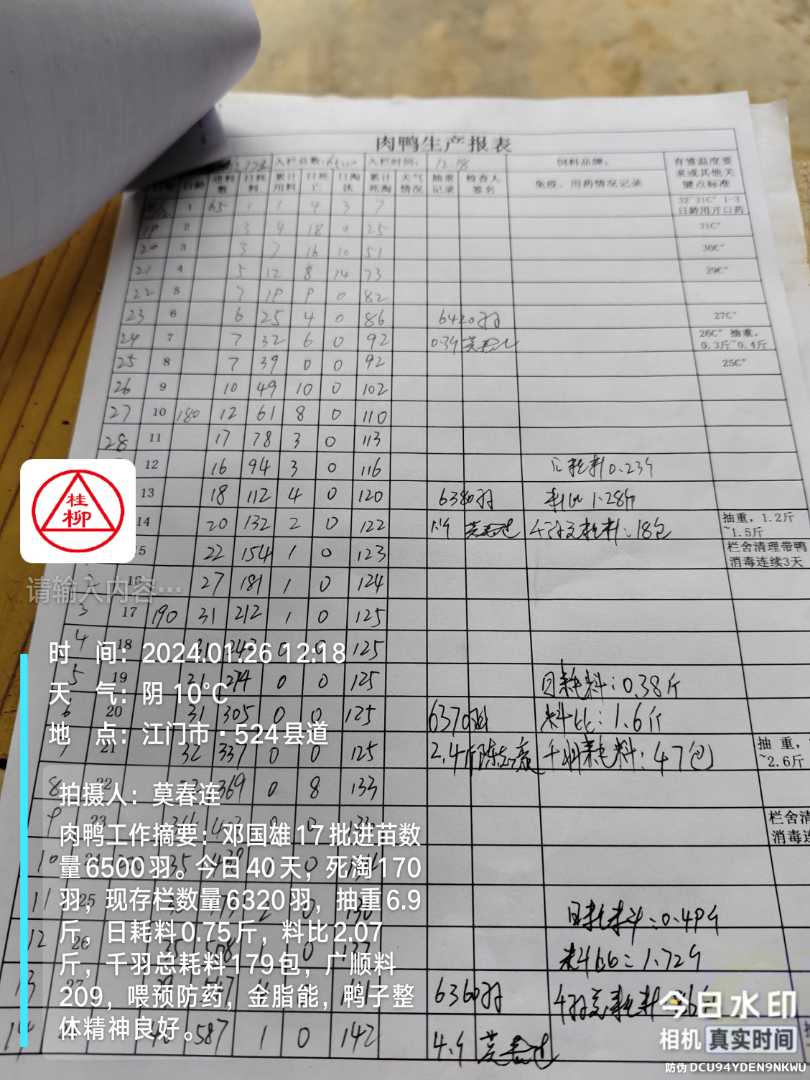 肉鸭生产报表
入栏总数: 入栏时间: 饲料品牌: 有雪温度要求或其他关键点标准
日龄 进料数 日耗料 累计用料 日死亡 日淘汰 累计死淘 天气情况 抽重记录 检查人签名 免疫、用药情况记录
1 65 1 1 4 3 7 日龄用开口药
19 2 3 4 18 0 25 31C°
20 3 3 7 16 10 51 30C°
21 4 5 12 8 14 73 29C°
22 5 7 19 9 0 82
23 6 6 25 4 0 86 6420羽 27C°
24 7 7 32 6 0 92 26C° 抽重,0.3斤~0.4斤
25 8 7 39 0 0 92 25C°
26 9 10 49 10 0 102
27 10 180 12 61 8 0 110
28 11 17 78 3 0 113
12 16 94 3 0 116 日耗料0.23斤
13 18 112 4 0 120 6380羽 料比1.28斤
14 20 132 2 0 122 18包 抽重,1.2斤~1.5斤
15 22 154 1 0 123 栏舍清理带鸭消毒连续3天
16 27 181 1 0 124
3 17 190 31 212 1 0 125
4 18 31 243 0 0 125
5 19 31 274 0 0 125 日耗料:0.38斤
6 20 31 305 0 0 125 6370羽 料比:1.6斤
7 21 32 337 0 0 125 2.4斤 千羽耗料:47包 抽重,~2.6斤
8 22 369 0 8 133
9 23 栏舍清 消毒连
10
11 25 日耗料:0.49斤
12 26 料比:1.72斤
13 6360羽
14 587 1 0 142 4.1
桂
柳
请输入内容…
时 间：2024.01.26 12:18
天 气：阴 10℃
地 点：江门市·524县道
拍摄人：莫春连
肉鸭工作摘要：邓国雄17批进苗数
量6500羽。今日40天，死淘170
羽，现存栏数量6320羽，抽重6.9
斤。日耗料0.75斤，料比2.07
斤，千羽总耗料179包，广顺料
209，喂预防药，金脂能，鸭子整
体精神良好。
今日水印
相机 真实时间
防伪 DCU94YDEN9NKWU